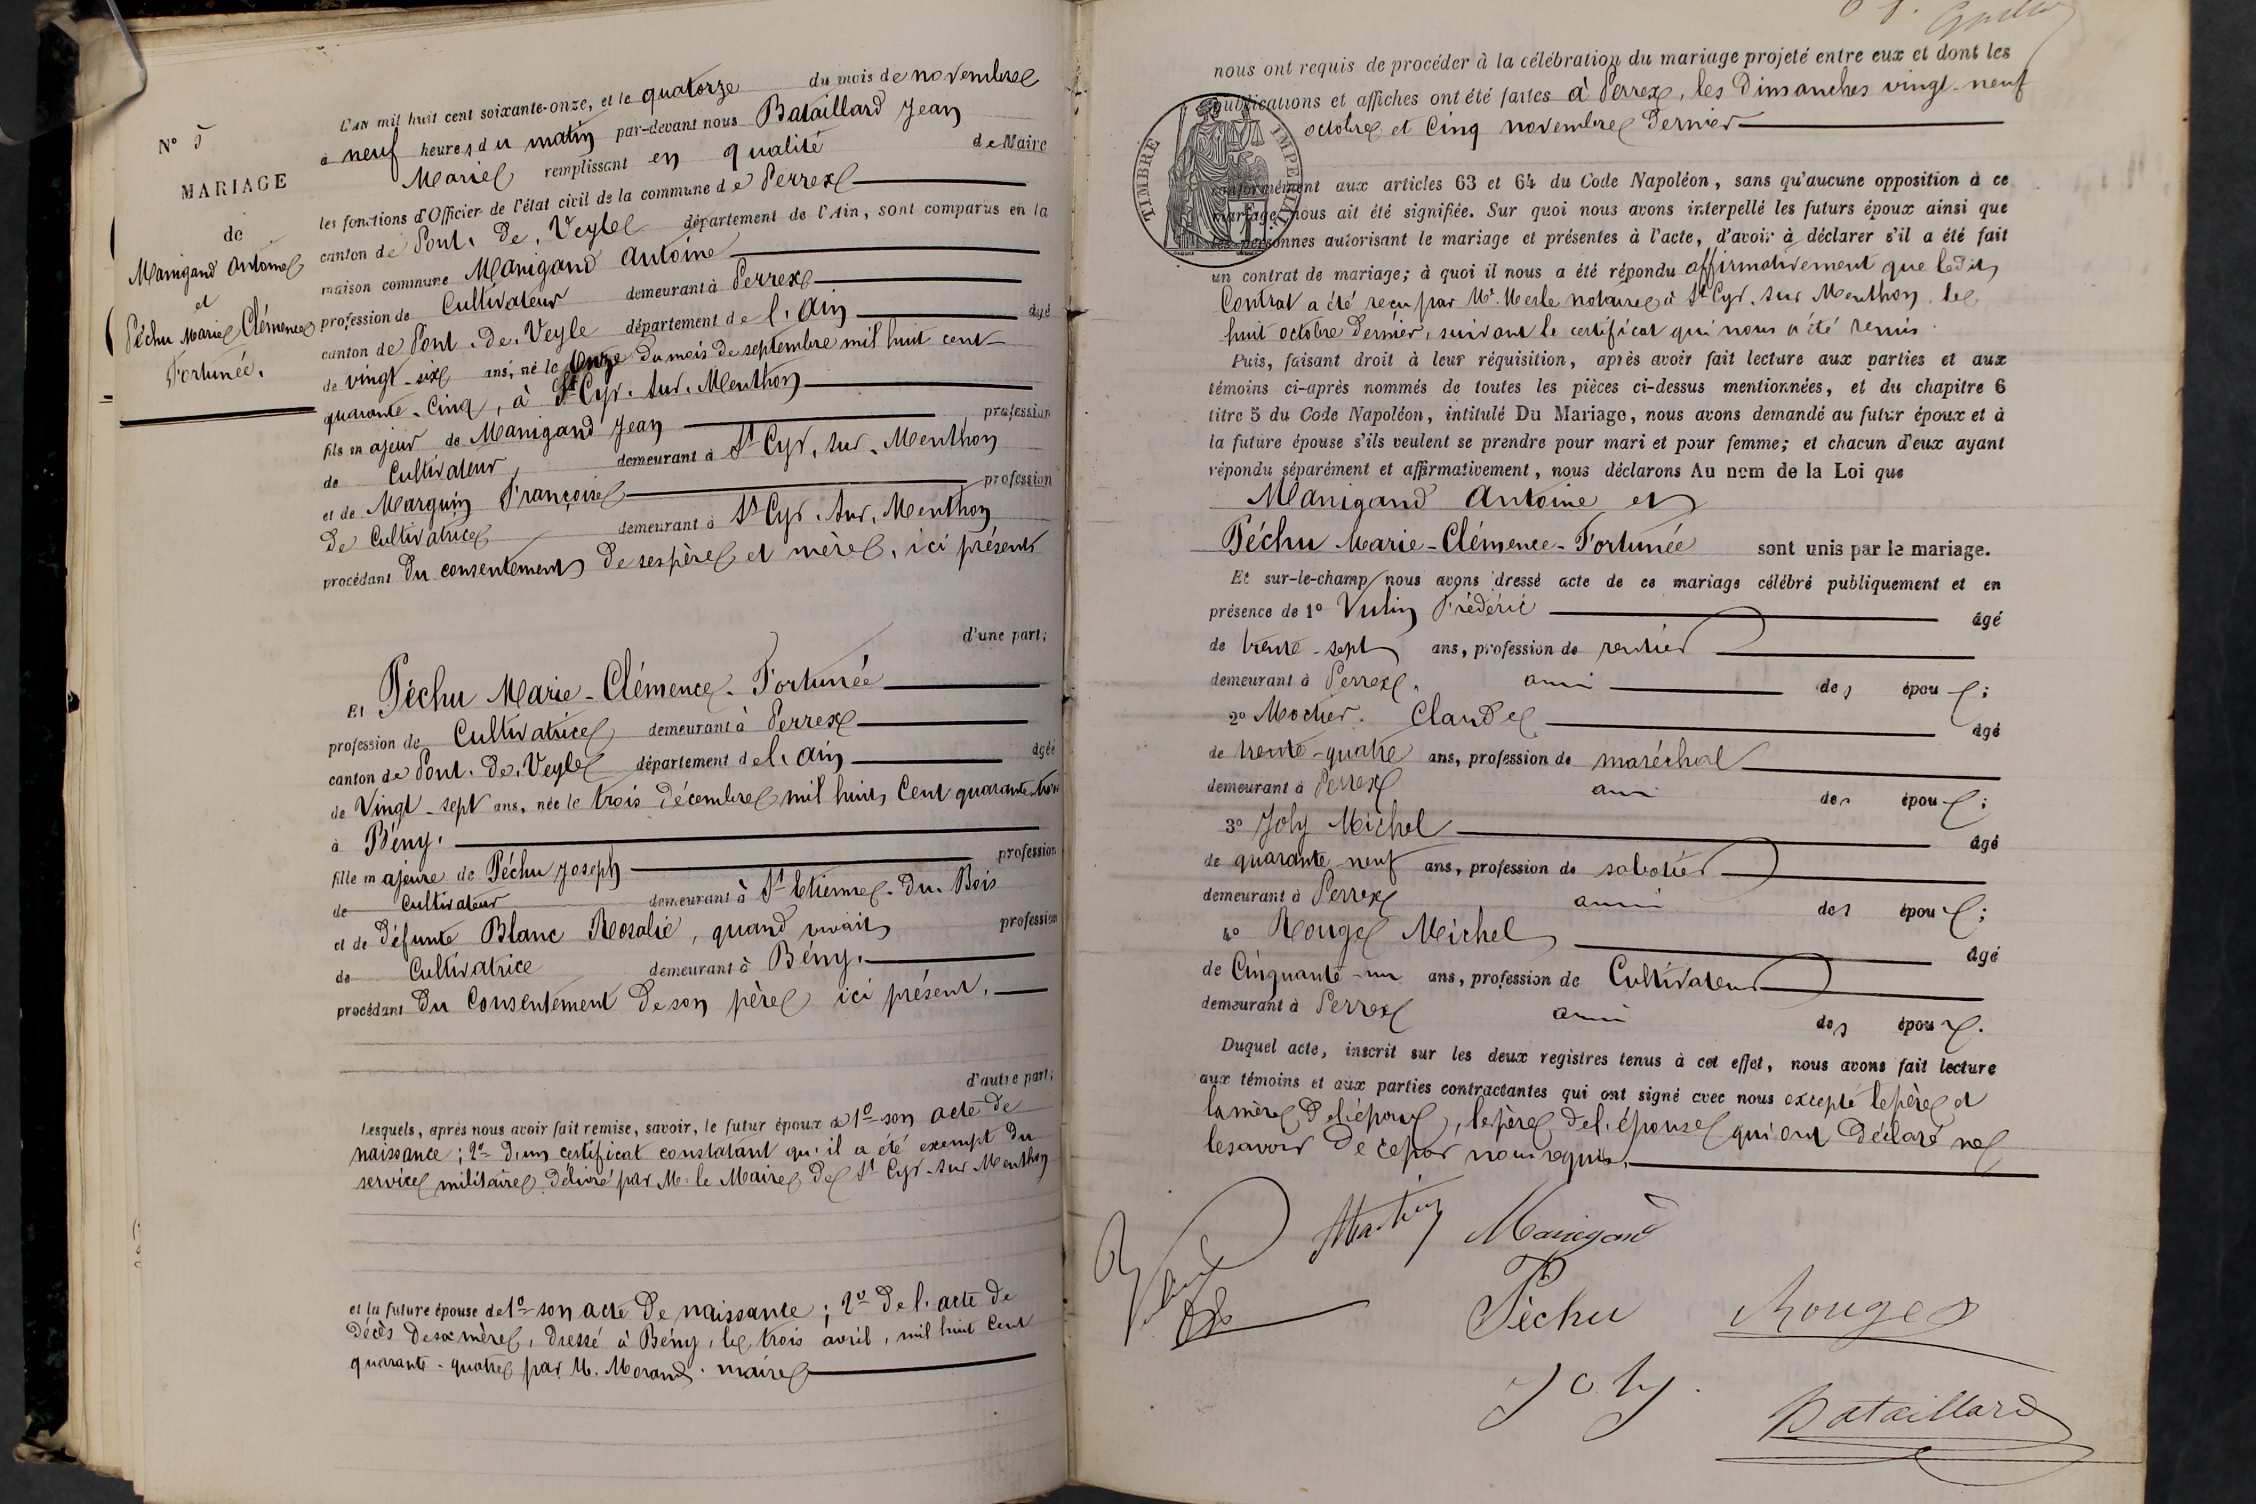 N° 5
MARIAGE
de
Manigand Antoine
et
Péchu Marie Clémence
Fortunée.
L'an mil huit cent soixante-onze, et le quatorze du mois de novembre
à neuf heures du matin par-devant nous Bataillard Jean
Maire remplissant en qualité de Maire
les fonctions d'Officier de l'état civil de la commune de Perrex
canton de Pont. de. Veyle département de l'Ain, sont comparus en la
maison commune Manigand Antoine
profession de Cultivateur demeurant à Perrex
canton de Pont. de. Veyle département de l'Ain âgé
de vingt-six ans, né le onze du mois de septembre mil huit cent
quarante-cinq, à St Cyr. sur. Menthon
fils majeur de Manigand Jean profession
de Cultivateur, demeurant à St Cyr. sur. Menthon
et de Marguin Françoise profession
de Cultivatrice demeurant à St Cyr. sur. Menthon
procédant du consentement de ses père et mère, ici présents
d'une part;
Et Péchu Marie-Clémence-Fortunée
profession de Cultivatrice demeurant à Perrex
canton de Pont. de. Veyle département de l'Ain âgée
de Vingt-sept ans, née le trois décembre mil huit cent quarante trois
à Bény.
fille majeure de Péchu Joseph profession
de Cultivateur demeurant à St Etienne. du. Bois
et de défunte Blanc Rosalie, quand vivait profession
de Cultivatrice demeurant à Bény.
procédant du consentement de son père ici présent.
d'autre part;
Lesquels, après nous avoir fait remise, savoir, le futur époux de 1° son acte de
naissance; 2° d'un certificat constatant qu'il a été exempt du
service militaire délivré par M. le Maire de St Cyr-sur Menthon
et la future épouse de 1° son acte de naissance; 2° de l'acte de
décès de sa mère, dressé à Bény, le trois avril, mil huit cent
quarante-quatre par M. Morand. maire
nous ont requis de procéder à la célébration du mariage projeté entre eux et dont les
publications et affiches ont été faites à Perrex, les Dimanches vingt-neuf
octobre et Cinq novembre dernier
TIMBRE IMPERIAL
conformément aux articles 63 et 64 du Code Napoléon, sans qu'aucune opposition à ce
mariage nous ait été signifiée. Sur quoi nous avons interpellé les futurs époux ainsi que
les personnes autorisant le mariage et présentes à l'acte, d'avoir à déclarer s'il a été fait
un contrat de mariage; à quoi il nous a été répondu affirmativement que ledit
Contrat a été reçu par Me. Merle notaire à St Cyr. sur Menthon le
huit octobre dernier, suivant le certificat qui nous a été remis.
Puis, faisant droit à leur réquisition, après avoir fait lecture aux parties et aux
témoins ci-après nommés de toutes les pièces ci-dessus mentionnées, et du chapitre 6
titre 5 du Code Napoléon, intitulé Du Mariage, nous avons demandé au futur époux et à
la future épouse s'ils veulent se prendre pour mari et pour femme; et chacun d'eux ayant
répondu séparément et affirmativement, nous déclarons Au nom de la Loi que
Manigand Antoine et
Péchu Marie-Clémence-Fortunée sont unis par le mariage.
Et sur-le-champ nous avons dressé acte de ce mariage célébré publiquement et en
présence de 1° Vulin Frédéric âgé
de trente-sept ans, profession de rentier
demeurant à Perrex. ami des époux;
2° Mochier. Claude âgé
de trente-quatre ans, profession de maréchal
demeurant à Perrex ami des époux;
3° Joly Michel âgé
de quarante neuf ans, profession de sabotier
demeurant à Perrex ami des époux;
4° Rouge Michel âgé
de Cinquante-un ans, profession de Cultivateur
demeurant à Perrex ami des époux.
Duquel acte, inscrit sur les deux registres tenus à cet effet, nous avons fait lecture
aux témoins et aux parties contractantes qui ont signé avec nous excepté le père et
la mère de l'époux, le père de l'épouse qui ont déclaré ne
le savoir de ce par nous requis.
Manigand
Péchu Rouge
Joly
Bataillard